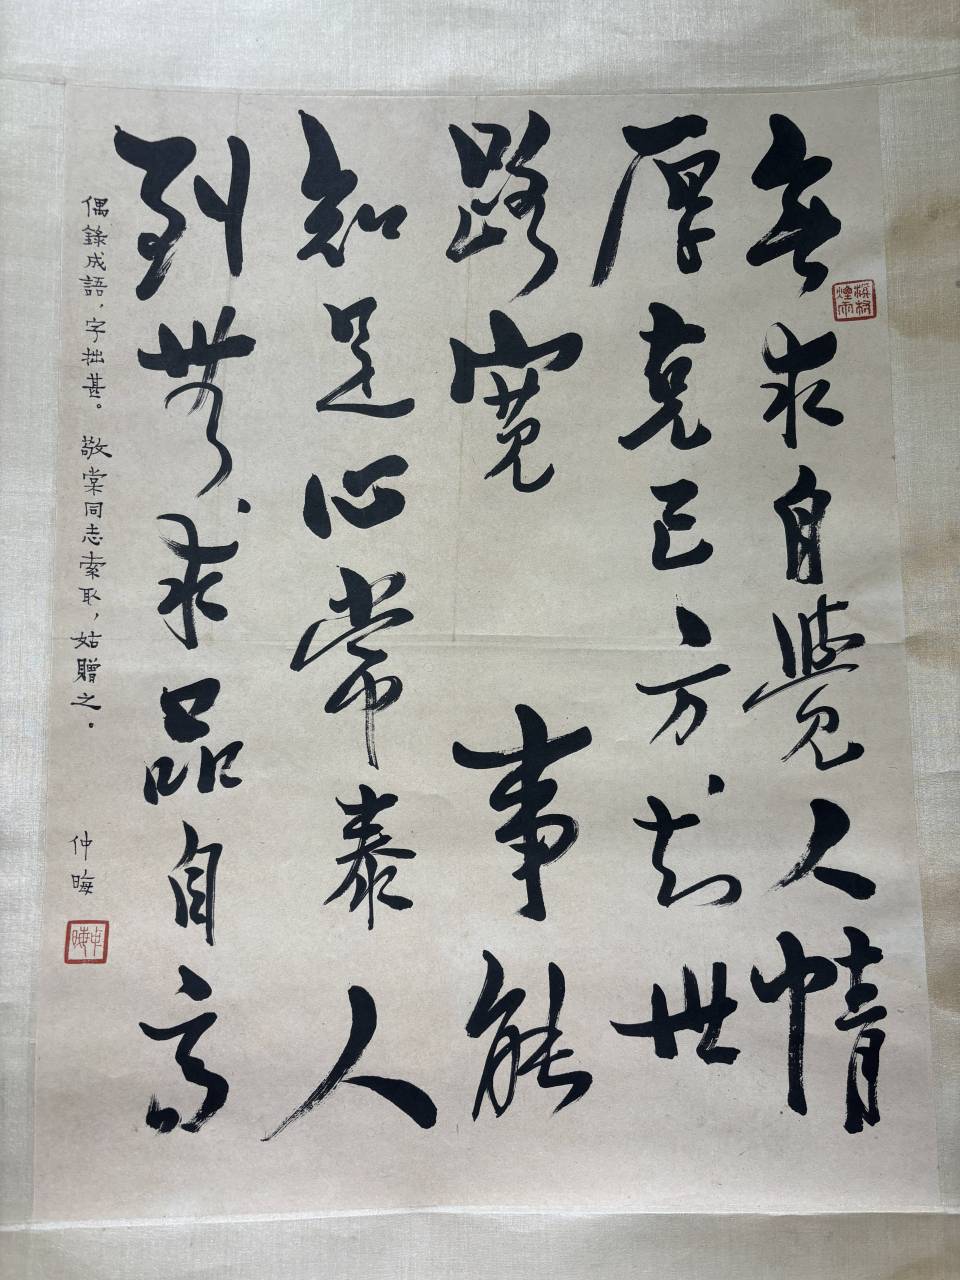 無求自覺人情
厚克己方知世
路寬　事能
知足心常泰人
到無求品自高
偶錄成語，字拙甚。敬棠同志索取，姑贈之。
仲晦
仲晦